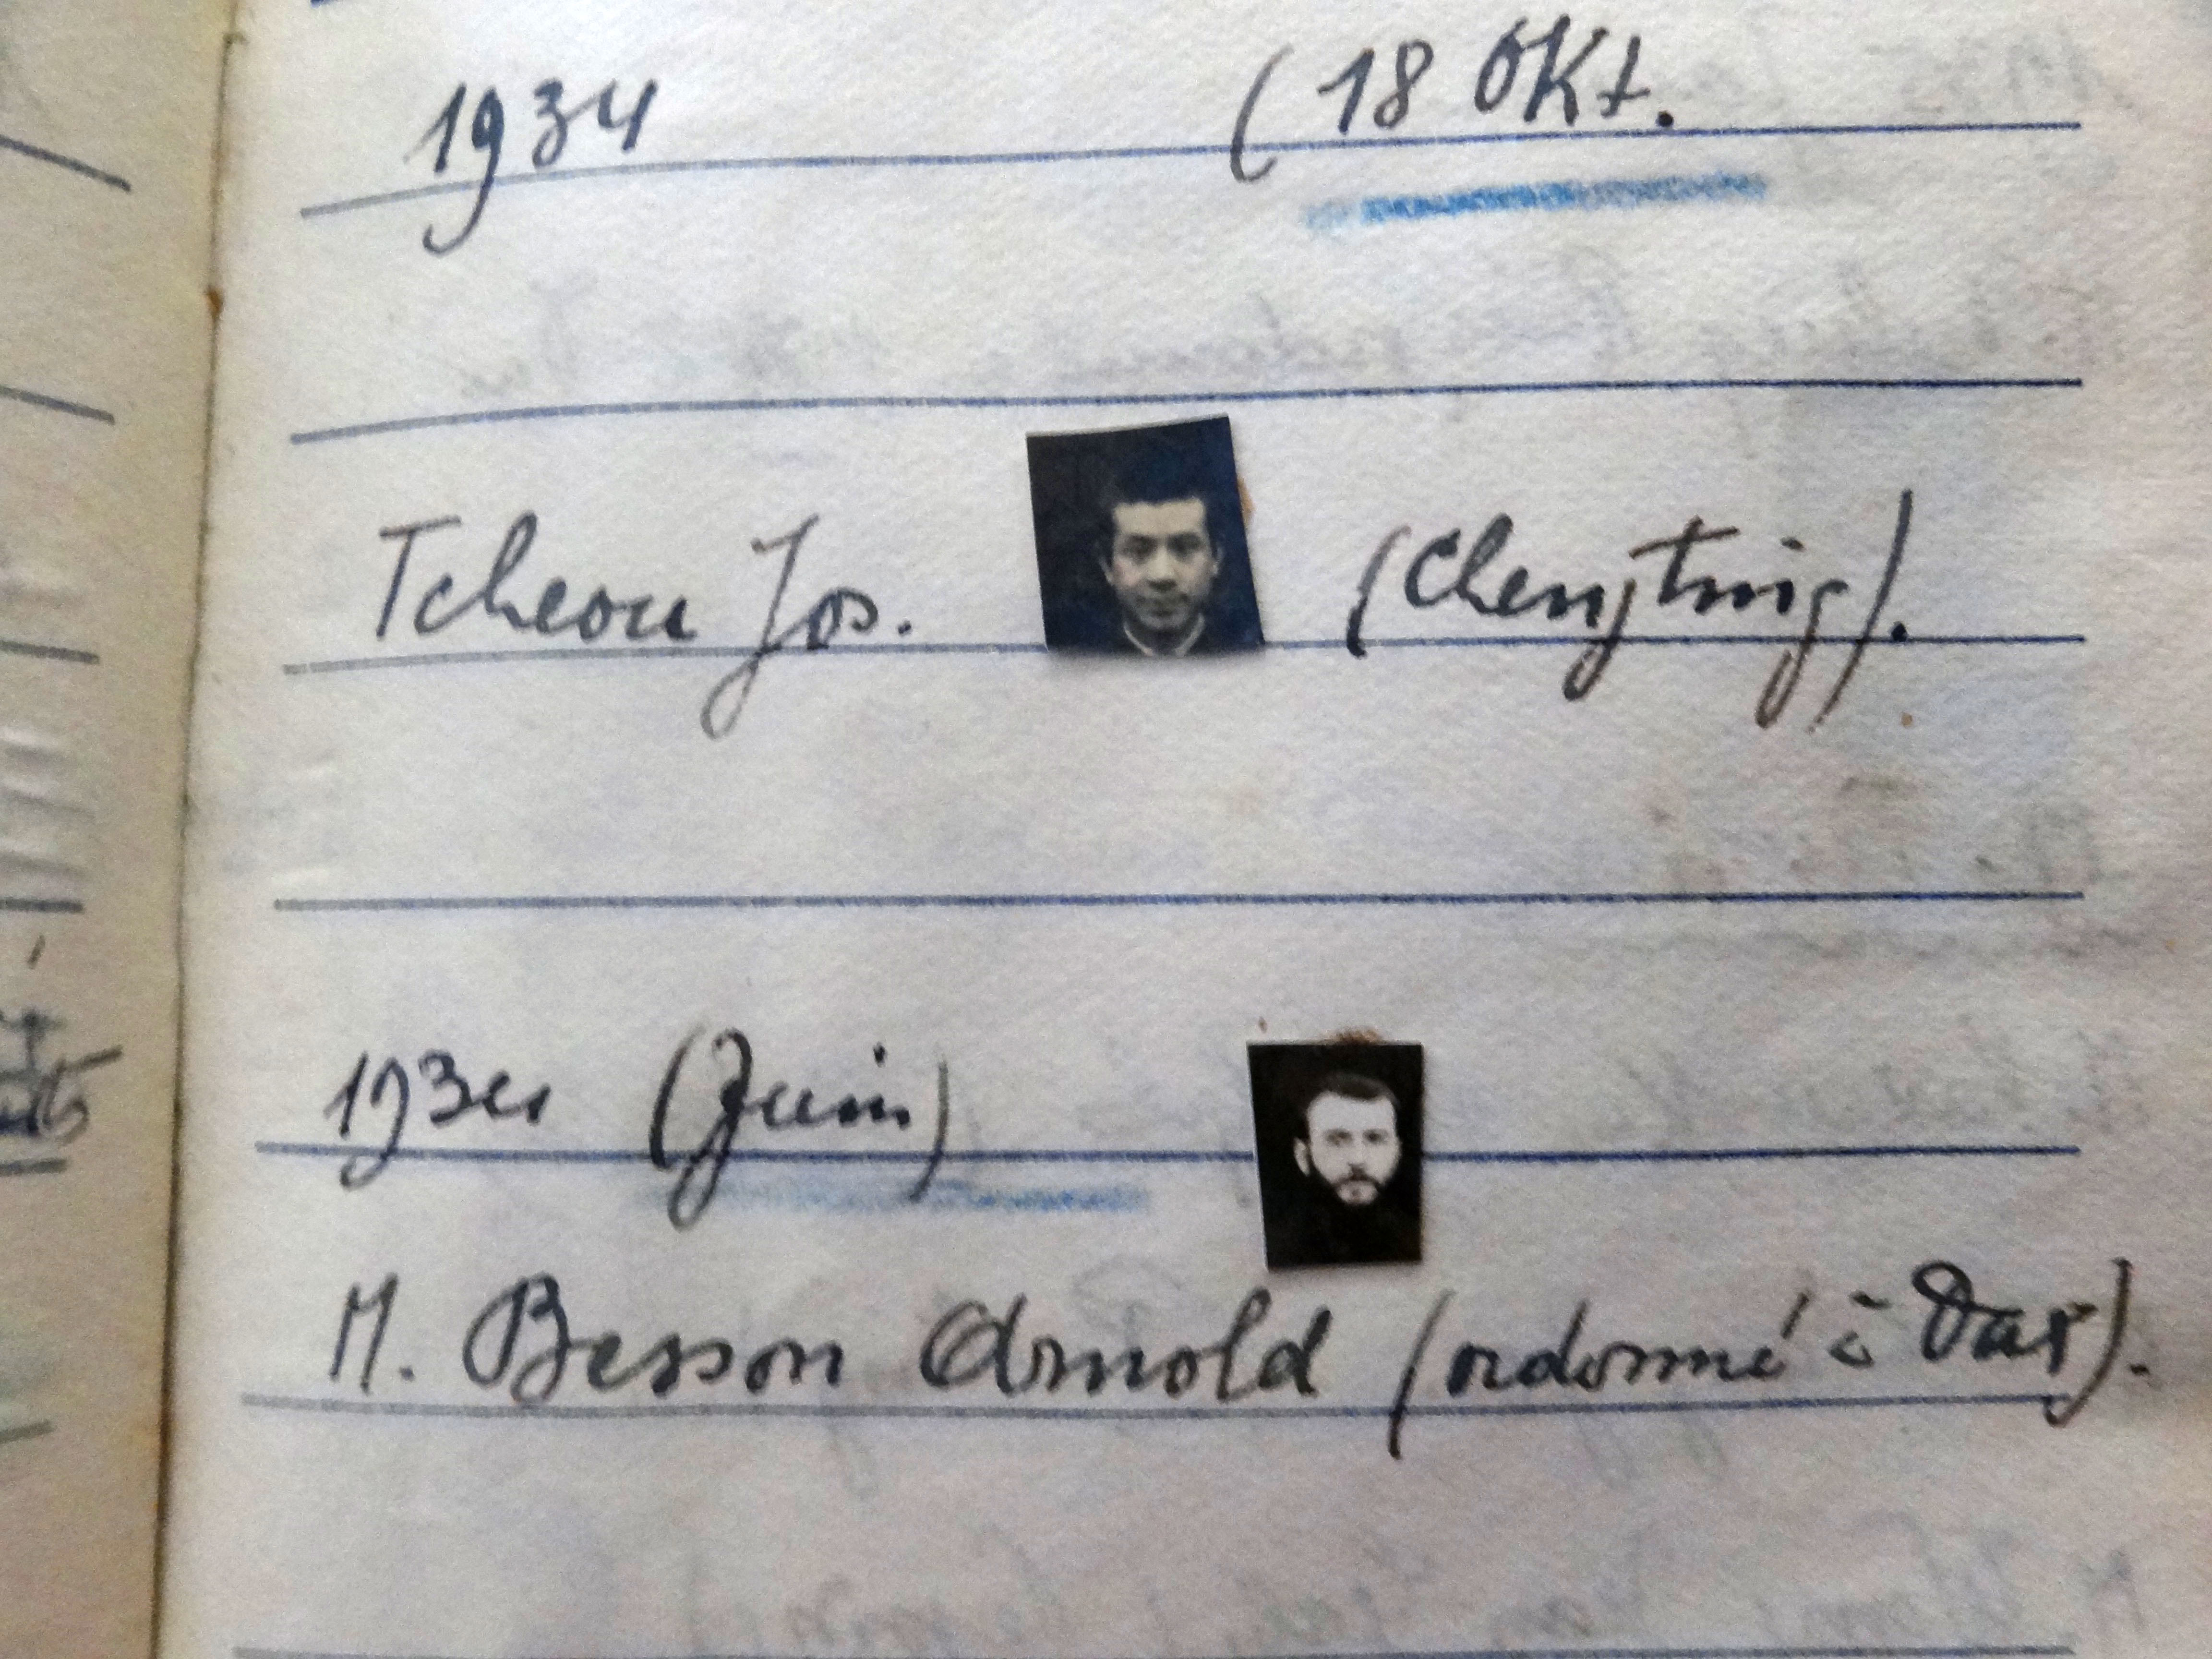 1934 (18 Okt.
Tcheou Jos. (Chengting).
1934 (Juin)
M. Besson Arnold (ordonné à Dax).